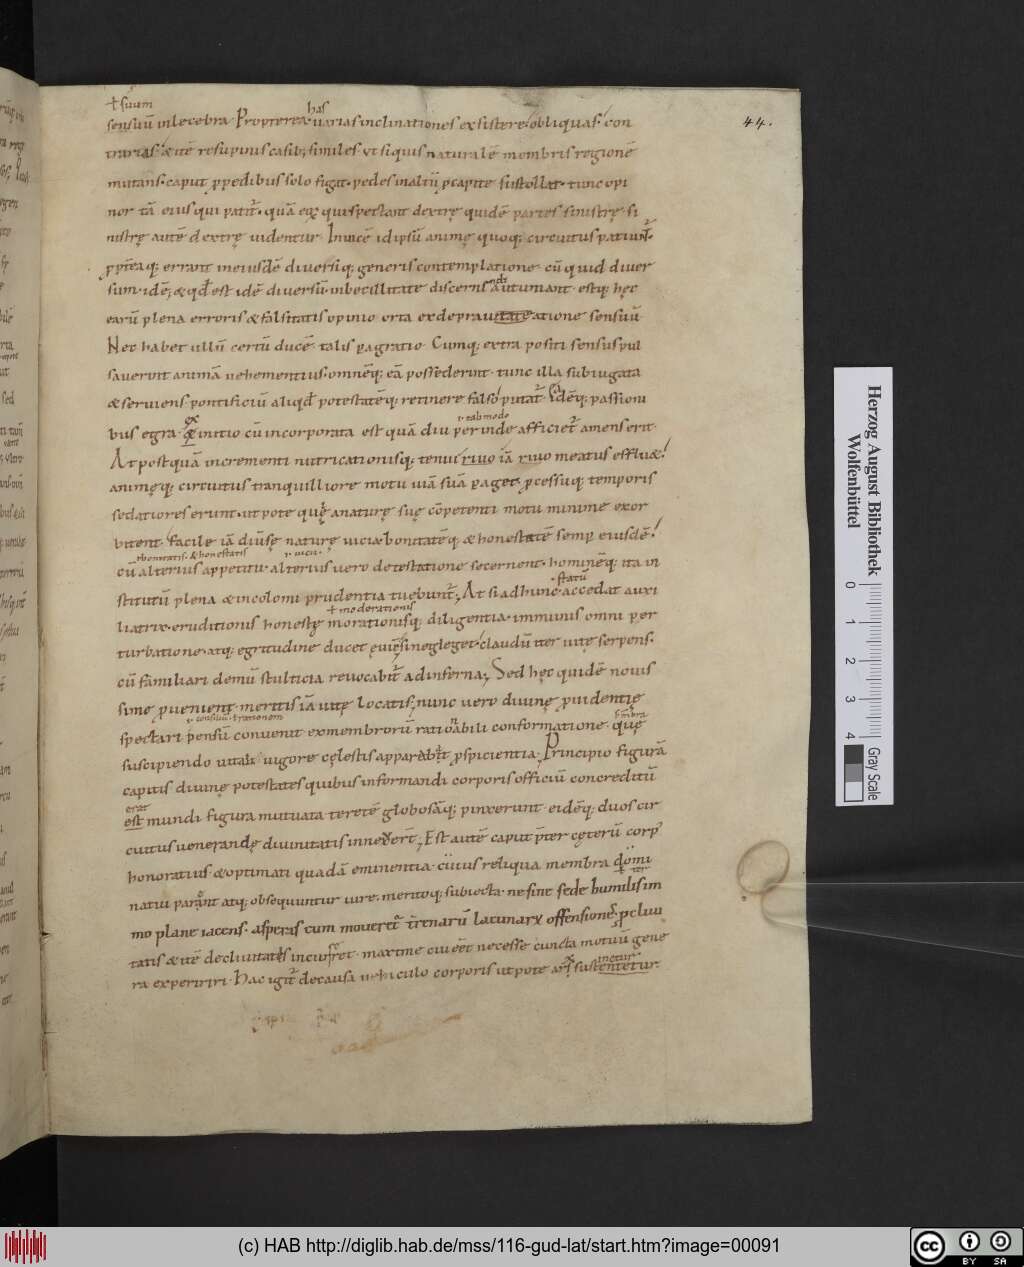 44.
ł suum
sensuū inlecebra. Propterea has uarias inclinationes existere. obliquas. con
trarias. & itē resupinis casib; similes. Vt siquis naturalē membris regionē
mutans. caput p pedibus solo figat. pedes inaltū p capite sustollat. tunc opi
nor tā eius qui patit̄. quā eoꝝ qui spectant dextrę quidē partes sinistrę. si
nistrę autē dextrę uidentur. Inuicē idipsū animę quoq; circuitus patiunt̄.
ppt̄eaq; errant ineiusdē diuersiq; generis contemplatione. cū quid diuer
sum. idē; & qđ est idē diuersū inbecillitate discernendi autumant. estq; hęc
earū plena erroris & falsitatis opinio orta ex deprauatione sensuū
Nec habet ullū certū ducē talis pagratio. Cumq; extra positi sensus pul
sauerint animā uehementius. omnēq; eā possederint. tunc illa subiugata
& seruiens. pontificiū aliqđ potestatēq; retinere falso putat̄. Idēq; passioni
ł tabmodo
bus egra. ex initio cū incorporata est quā diu perinde afficiet̄ amens erit.
At postquā incrementi nutricationisq; tenui riuo iā riuo meatus effluet
animęq; circuitus tranquilliore motu uiā suā paget. pcessuq; temporis
sedatiores erunt. utpote quę anaturę suę cōpetenti motu minime exor
bitent. facile iā diuersę naturę uicia. bonitatēq; & honestatē semp eiusdē
ł bonitatis. & honestatis
ł uicii.
cū alterius appetitu. alterius uero detestatione secernent. hominēq; ita in
statū
stitutū plena & incolomi prudentia tuebunt̄; At si adhunc. accedat auxi
ł moderationis
liatrix. eruditionis honestę morationisq; diligentia. immunis omni per
turbatione. atq; egritudine ducet ęuū. si negleget. claudū iter uitę serpens.
cū familiari demū stulticia reuocabit̄ ad inferna; Sed hęc quidē nouis
sime pueniunt meritis iā uitę locatis; nunc uero diuinę puidentię
ł consiliū. ł rationem
membra
spectari pensū conuenit ex membrorū rationabili conformatione. quę
suscipiendo uitali uigore cęlestis apparabit̄ pspicientia. Principio figurā
capitis diuinę potestates quibus informandi corporis officiū concreditū
erat
est mundi figura mutuata teretē globosāq; pinxerunt. eidēq; duos cir
cuitus uenerandę diuinitatis innexert̄; Est autē caput p̄ter cęterū corp'
honoratius. & optimati quadā eminentia. cuius reliqua membra domi
natui parant atq; obsequuntur iure. meritoq; subiecta. ne sine sede humilisim
mo plane iacens. asperas cum moueret̄ t̄renarū lacunarꝝ offensiones. pcliui
tatis & itē decliuitatis incurreret. maxime cui eēt necesse cuncta motuū gene
ra experiri. Hac igit̄ decausa uehiculo corporis utpote arx sustentetur.
Herzog August Bibliothek
Wolfenbüttel
0 1 2 3 4
Gray Scale
(c) HAB http://diglib.hab.de/mss/116-gud-lat/start.htm?image=00091
cc BY SA